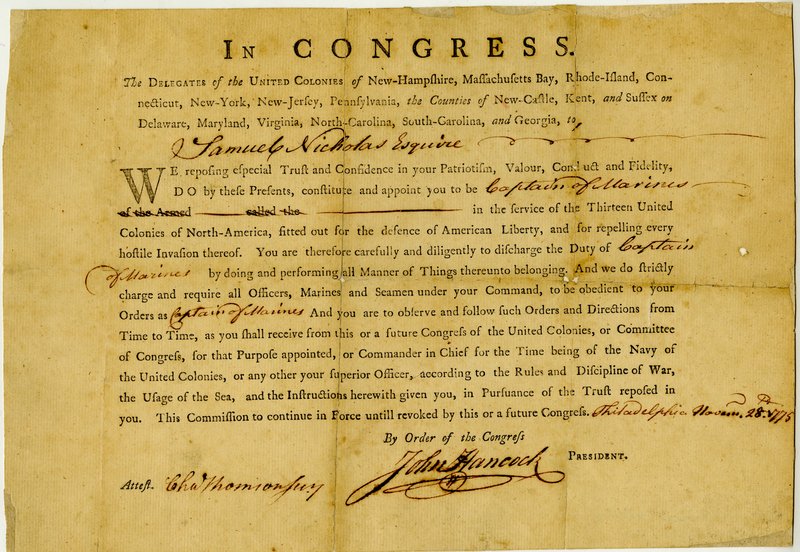 IN CONGRESS.
The DELEGATES of the UNITED COLONIES of New-Hampſhire, Maſſachuſetts Bay, Rhode-Iſland, Con-
necticut, New-York, New-Jerſey, Pennſylvania, the Counties of New-Caſtle, Kent, and Suſſex on
Delaware, Maryland, Virginia, North-Carolina, South-Carolina, and Georgia, to,
Samuel Nicholas Esquire
WE repoſing eſpecial Truſt and Confidence in your Patriotiſm, Valour, Conduct and Fidelity,
DO by theſe Preſents, conſtitute and appoint you to be Captain of Marines
of the Armed called the in the ſervice of the Thirteen United
Colonies of North-America, fitted out for the defence of American Liberty, and for repelling every
hoſtile Invaſion thereof. You are therefore carefully and diligently to diſcharge the Duty of Captain
of Marines by doing and performing all Manner of Things thereunto belonging. And we do ſtrictly
charge and require all Officers, Marines and Seamen under your Command, to be obedient to your
Orders as Captain of Marines And you are to obſerve and follow ſuch Orders and Directions from
Time to Time, as you ſhall receive from this or a future Congreſs of the United Colonies, or Committee
of Congreſs, for that Purpoſe appointed, or Commander in Chief for the Time being of the Navy of
the United Colonies, or any other your ſuperior Officer, according to the Rules and Diſcipline of War,
the Uſage of the Sea, and the Inſtructions herewith given you, in Purſuance of the Truſt repoſed in
you. This Commiſſion to continue in Force untill revoked by this or a future Congreſs. Philadelphia Novem. 28th. 1775
By Order of the Congreſs
John Hancock PRESIDENT.
Atteſt. Cha Thomson secy